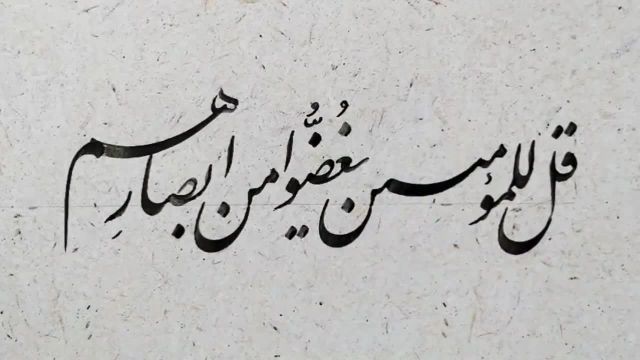 قل للمؤمنین یغُضُّوا من ابصارِهم